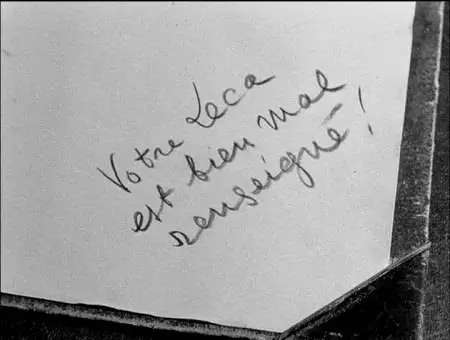 Votre Leca
est bien mal
renseigné !